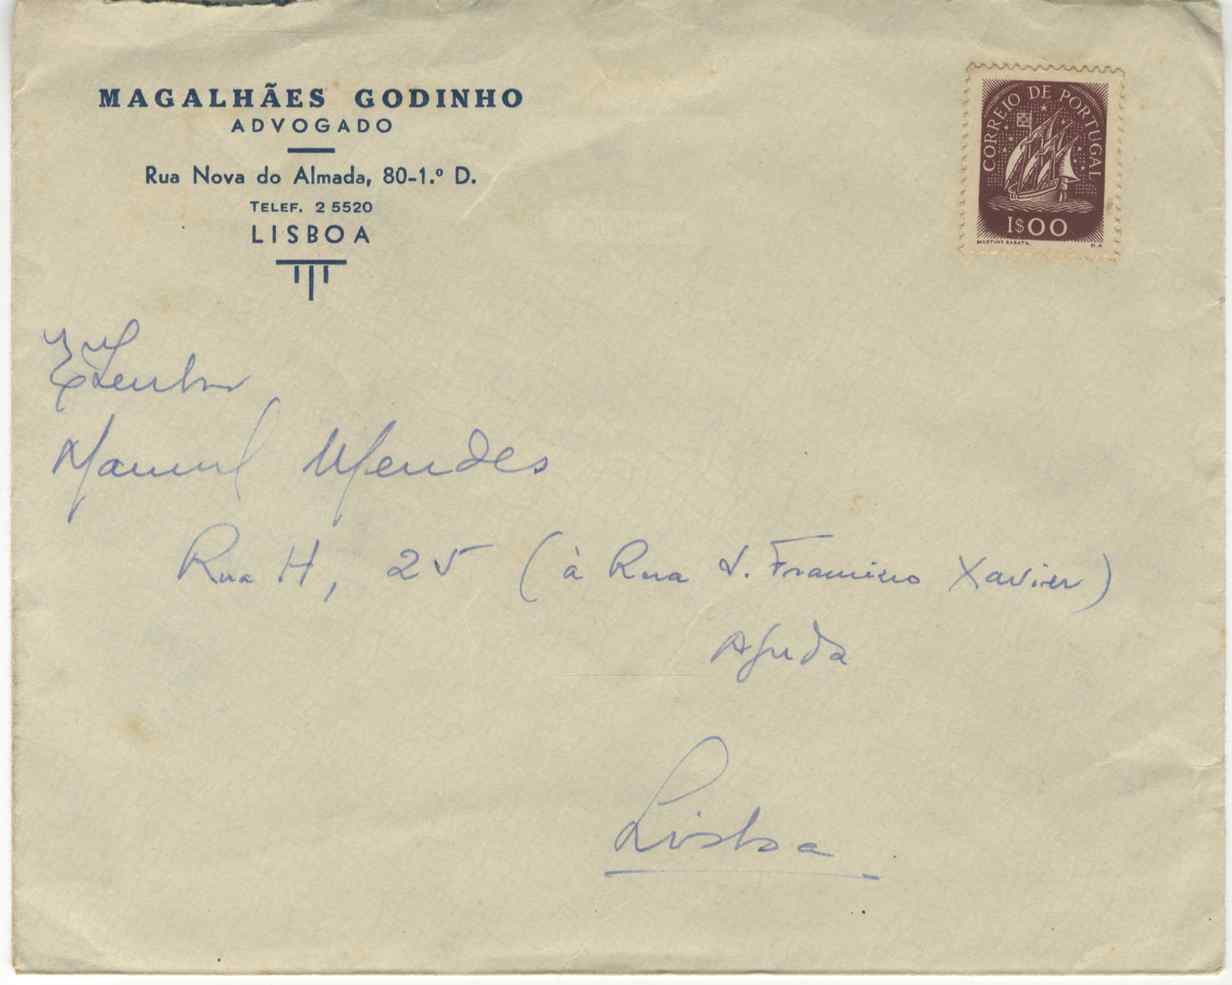 MAGALHÃES GODINHO
ADVOGADO
Rua Nova do Almada, 80-1.º D.
TELEF. 2 5520
LISBOA
CORREIO DE PORTUGAL
1$00
MARTINS BARATA
Manuel Mendes
Rua H, 25 (à Rua S. Francisco Xavier)
Ajuda
Lisboa